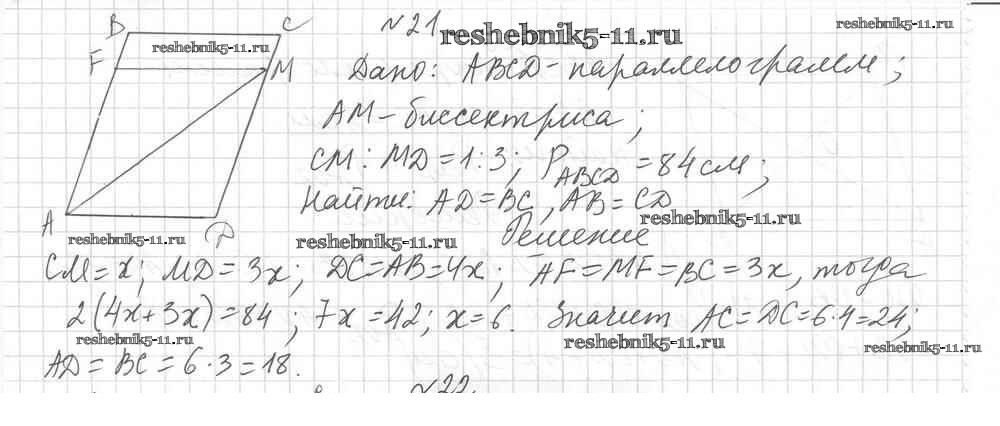 №21
reshebnik5-11.ru
reshebnik5-11.ru
B
C
reshebnik5-11.ru
F
M
Дано: ABCD - параллелограмм;
AM - биссектриса;
CM : MD = 1:3; P_ABCD = 84 см;
Найти: AD = BC, AB = CD
reshebnik5-11.ru
A
D
reshebnik5-11.ru
reshebnik5-11.ru
Решение
CM = x; MD = 3x; DC = AB = 4x; AF = MF = BC = 3x, тогда
2(4x+3x) = 84; 7x = 42; x = 6. Значит AC = DC = 6·4 = 24;
reshebnik5-11.ru
reshebnik5-11.ru
reshebnik5-11.ru
AD = BC = 6·3 = 18.
№22